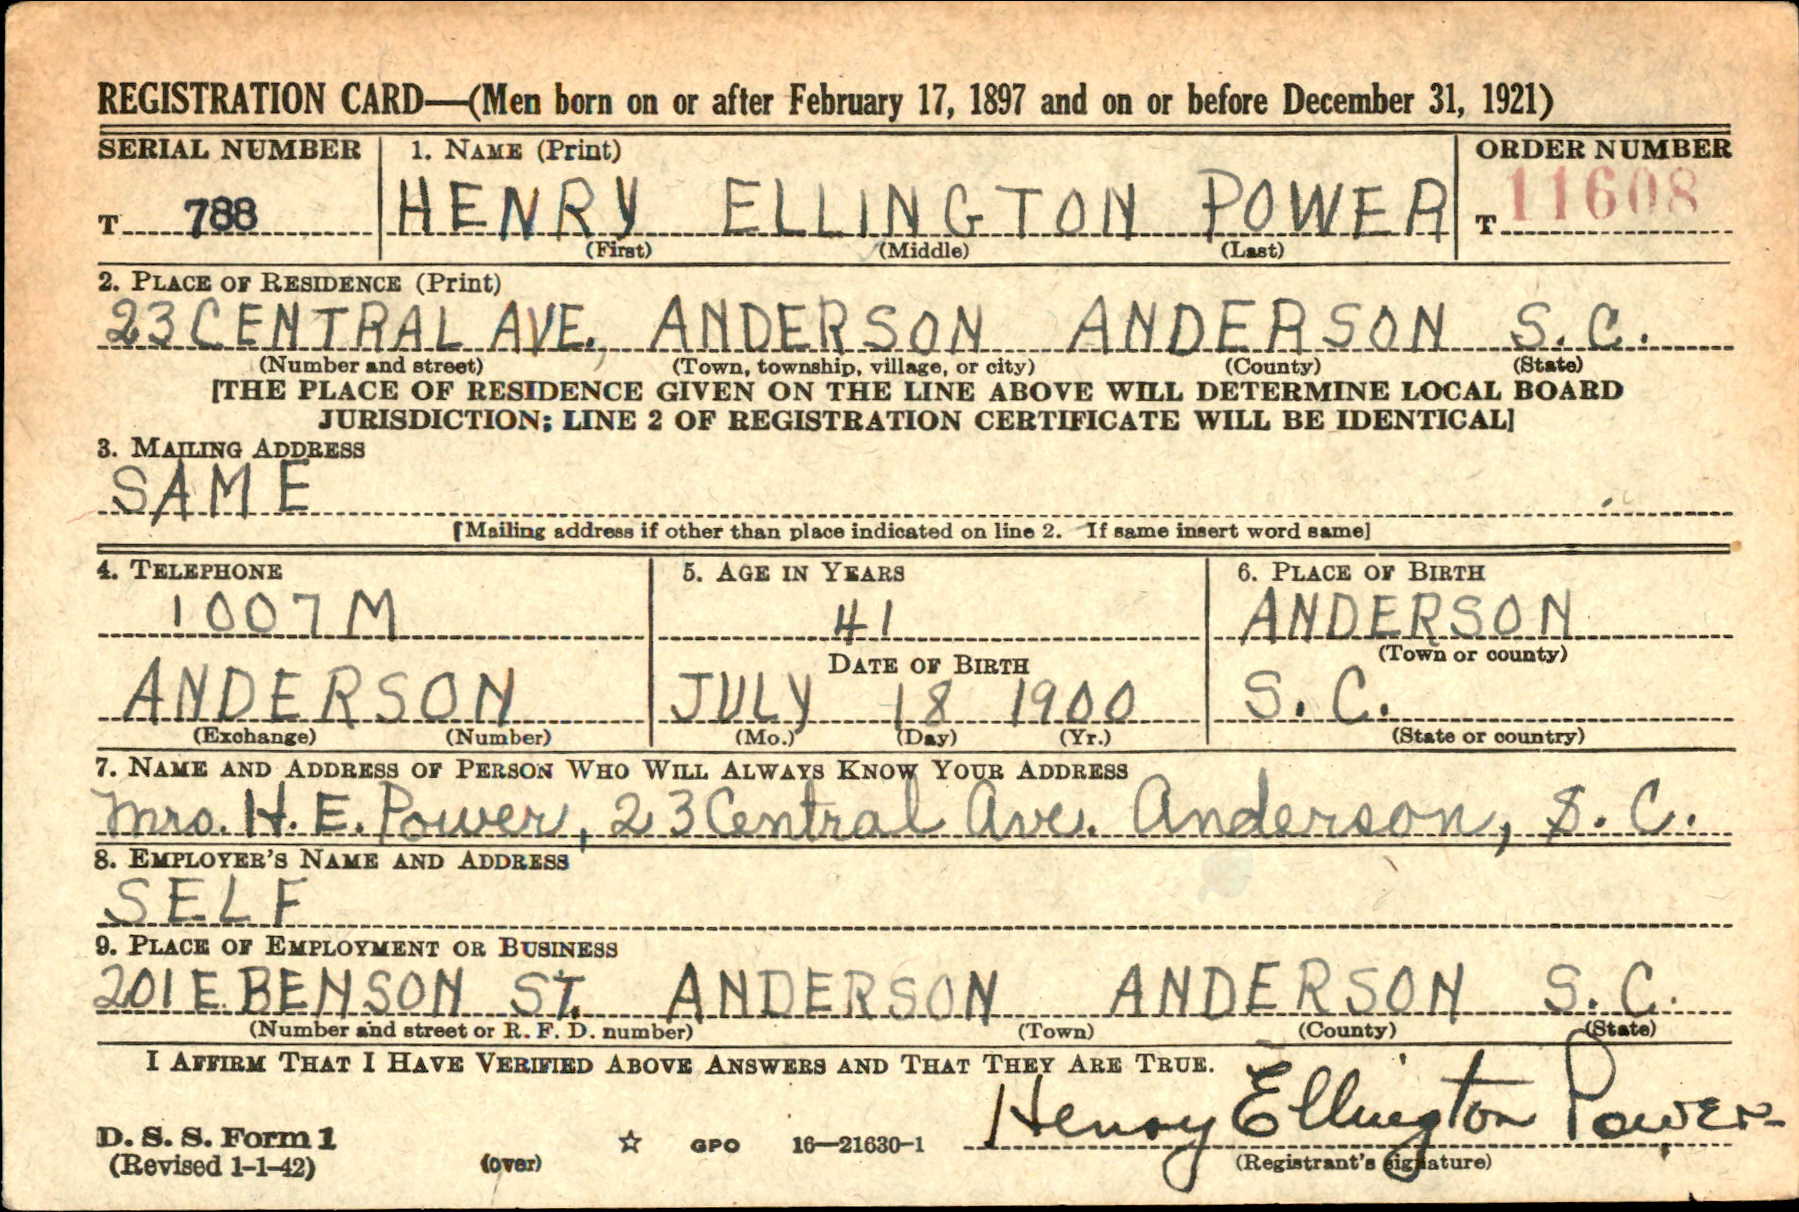 REGISTRATION CARD—(Men born on or after February 17, 1897 and on or before December 31, 1921)
SERIAL NUMBER 1. NAME (Print) ORDER NUMBER
T 788 HENRY ELLINGTON POWER T 11608
(First) (Middle) (Last)
2. PLACE OF RESIDENCE (Print)
23 CENTRAL AVE. ANDERSON ANDERSON S. C.
(Number and street) (Town, township, village, or city) (County) (State)
[THE PLACE OF RESIDENCE GIVEN ON THE LINE ABOVE WILL DETERMINE LOCAL BOARD
JURISDICTION; LINE 2 OF REGISTRATION CERTIFICATE WILL BE IDENTICAL]
3. MAILING ADDRESS
SAME
[Mailing address if other than place indicated on line 2. If same insert word same]
4. TELEPHONE 5. AGE IN YEARS 6. PLACE OF BIRTH
1007 M 41 ANDERSON
DATE OF BIRTH (Town or county)
ANDERSON JULY 18 1900 S. C.
(Exchange) (Number) (Mo.) (Day) (Yr.) (State or country)
7. NAME AND ADDRESS OF PERSON WHO WILL ALWAYS KNOW YOUR ADDRESS
Mrs. H. E. Power, 23 Central Ave. Anderson, S. C.
8. EMPLOYER'S NAME AND ADDRESS
SELF
9. PLACE OF EMPLOYMENT OR BUSINESS
201 E. BENSON ST. ANDERSON ANDERSON S. C.
(Number and street or R. F. D. number) (Town) (County) (State)
I AFFIRM THAT I HAVE VERIFIED ABOVE ANSWERS AND THAT THEY ARE TRUE.
Henry Ellington Power
D. S. S. Form 1
(Revised 1-1-42) (over) ☆ GPO 16—21630-1 (Registrant's signature)